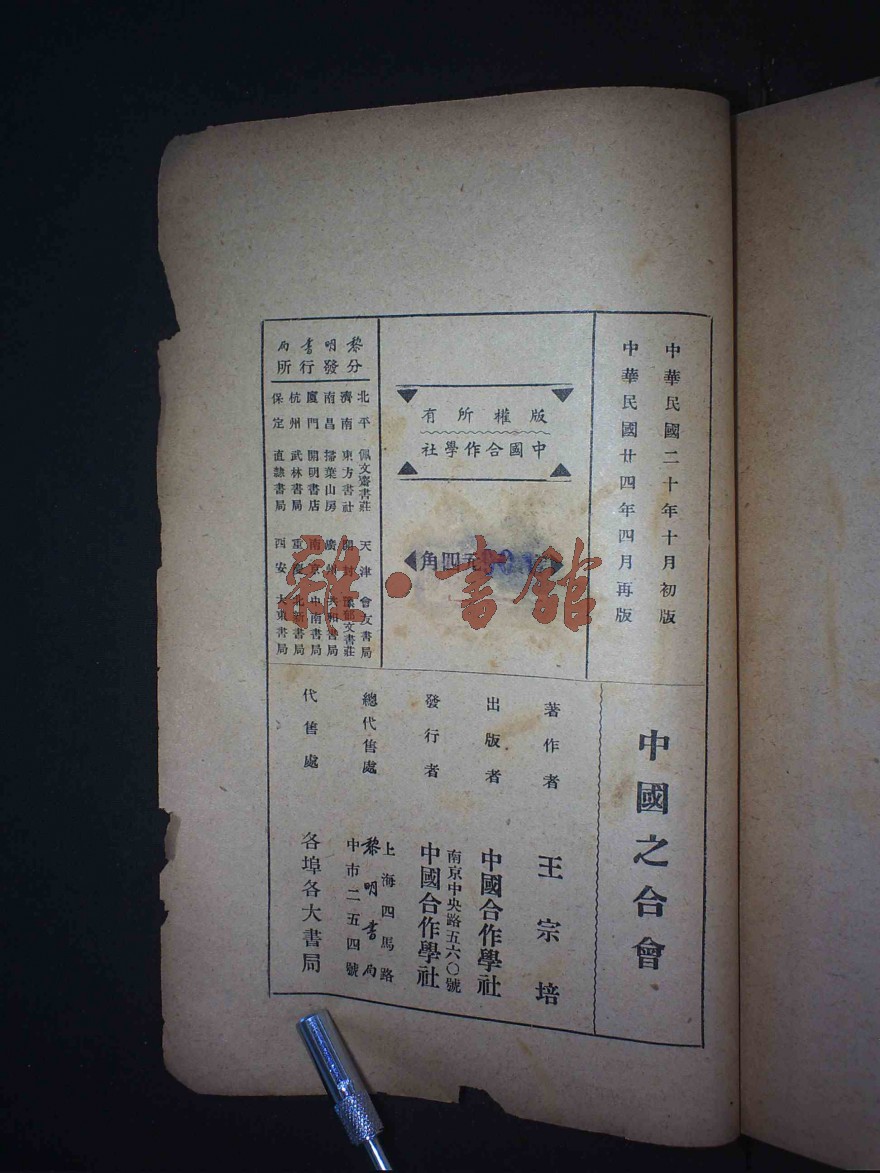 中華民國二十年十月初版
中華民國廿四年四月再版
中國之合會
版權所有
中國合作學社
元四角
著作者 王宗培
出版者 中國合作學社
南京中央路五六〇號
發行者 中國合作學社
總代售處
上海四馬路
黎明書局
中市二五四號
代售處 各埠各大書局
黎明書局
分發行所
北平 佩文齋書莊 天津 會友書局
濟南 東方書社 開封 文書莊
南昌 掃葉山房 廣州 共和書局
廈門 開明書店 南京 中南書局
杭州 武林書局 重慶 北新書局
保定 直隸書局 西安 大東書局
雜·書館